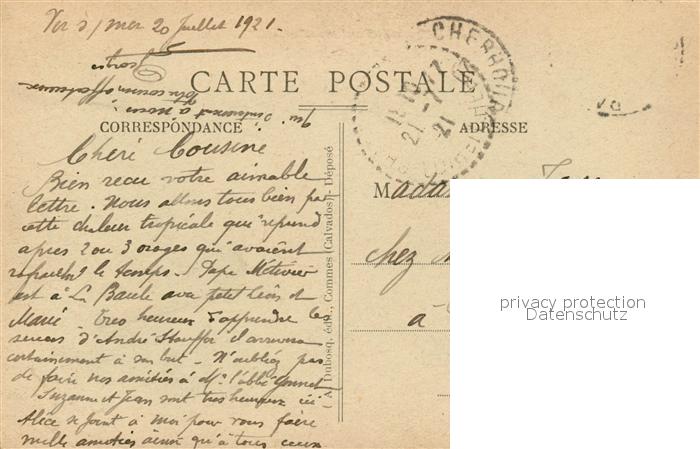 Ver s/ mer 20 Juillet 1921.
CARTE POSTALE
CORRESPONDANCE
ADRESSE
CHERBOUR
21 -7 21
Cheri Cousine
Bien recu votre aimable
lettre. Nous allons tous bien par
cette chaleur tropicale qui reprend
apres 2 ou 3 orages qui avaient
le temps. Papa Métivier
est à La Baule avec petit Léon et
Marie. Tres heureux d'apprendre les
succes d'André Stauffer il arrivera
certainement à son but. N'oubliez pas
de faire nos amitiés à Mr l'abbé
Suzanne et Jean sont tres heureux ici
Alice se joint à moi pour vous faire
mille amitiés ainsi qu'à tous ceux
qui
à nous
Votre cousin affectueux
( A. Dubosq, édit., Commes (Calvados). Déposé
Mada
chez
à
privacy protection
Datenschutz